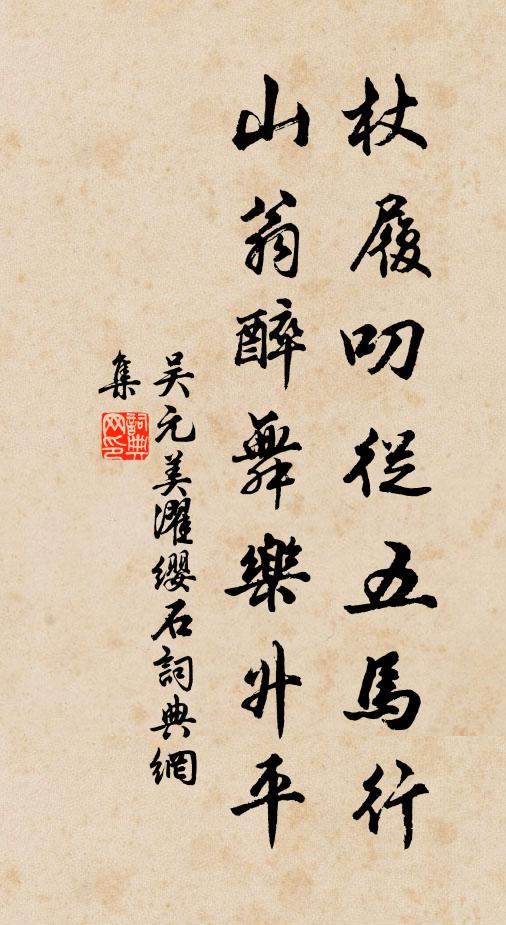 杖履叨從五馬行
山翁醉舞樂升平
吴元美濯纓石詞典網
集
詞典网印